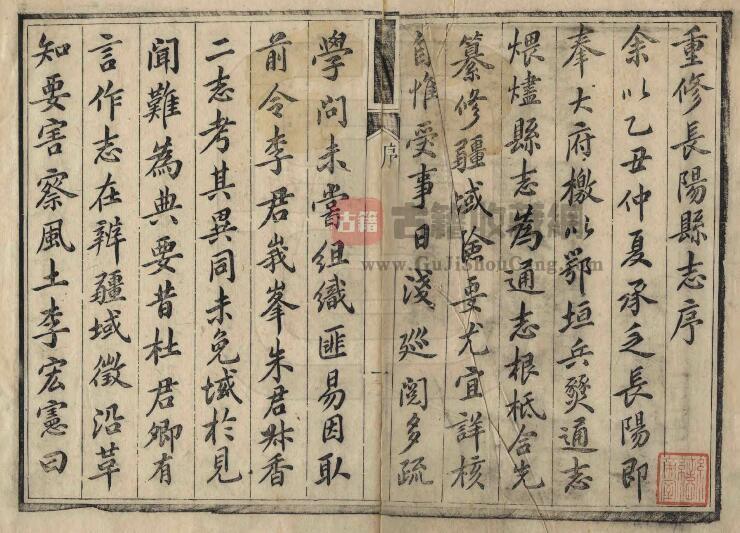 重修長陽縣志序
余以乙丑仲夏承乏長陽即
奉大府檄以鄂垣兵燹通志
煨燼縣志為通志根柢合先
纂修疆域險要尤宜詳核
自惟受事日淺廵閱多疏
序
學問未嘗組織匪易因取
前令李君峩峯朱君香
二志考其異同未免域於見
聞難為典要昔杜君卿有
言作志在辨疆域徵沿革
知要害察風土李宏憲曰
古籍
古籍收藏網
www.GuJiShouCang.com